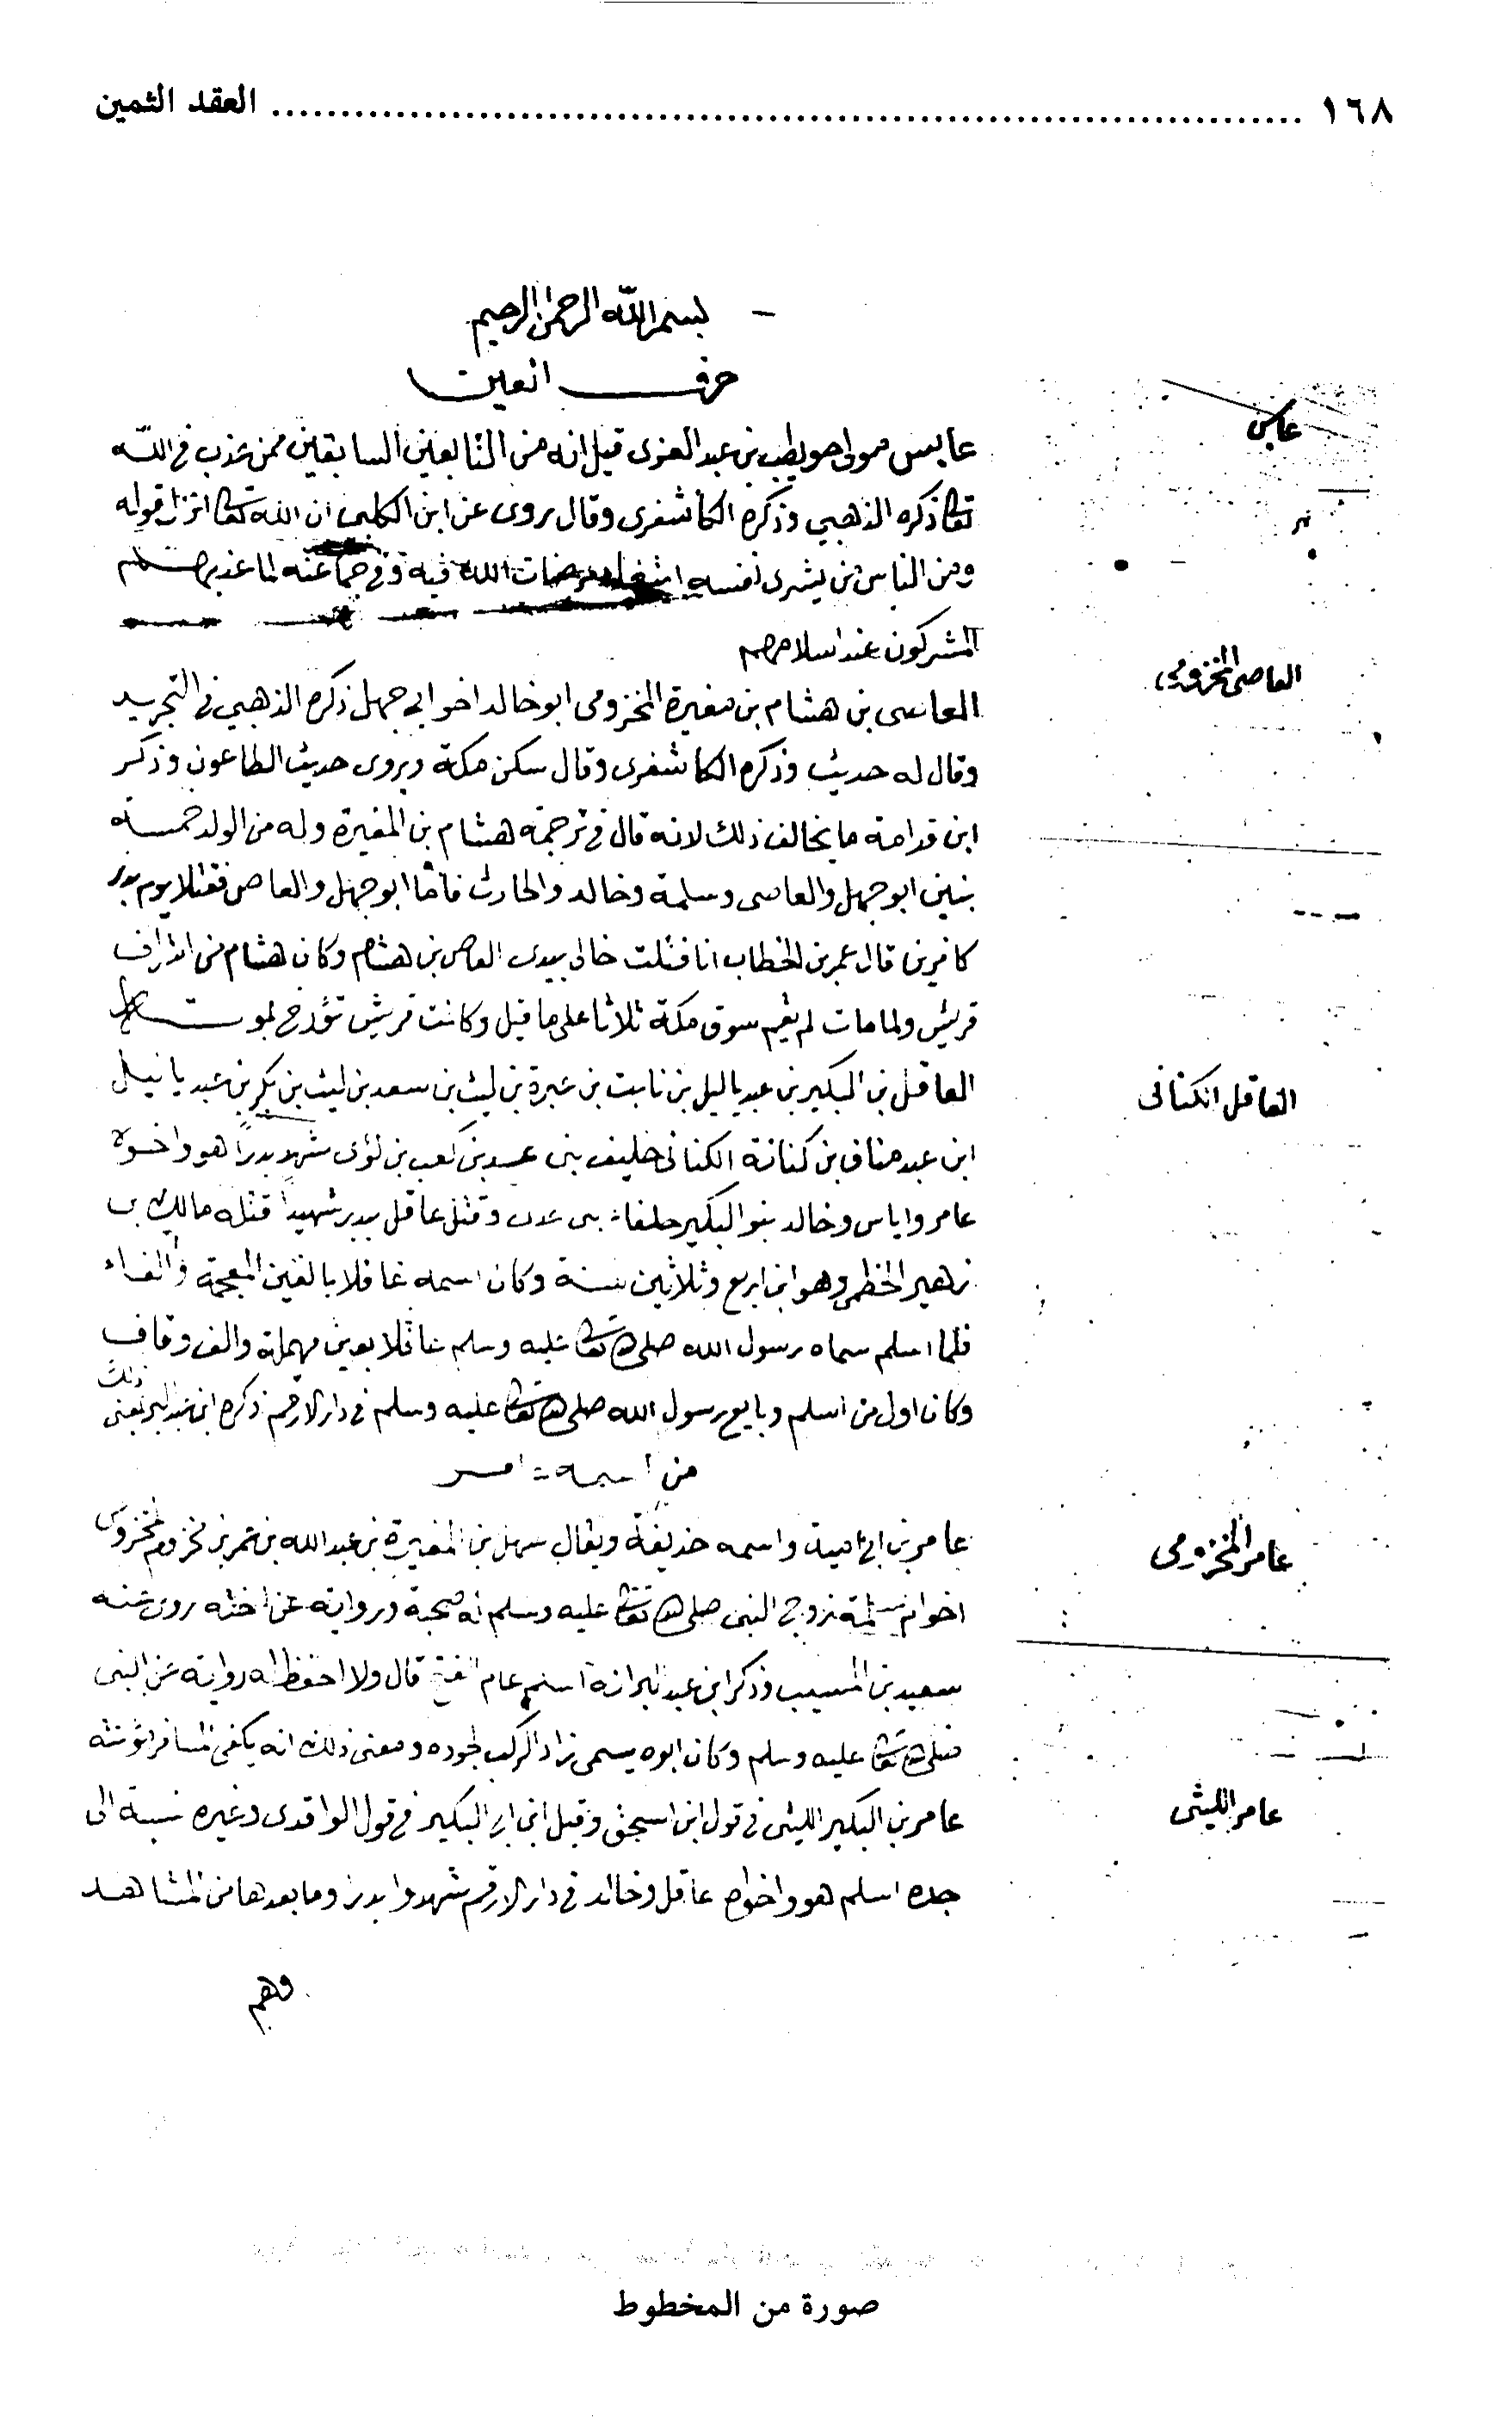 ١٦٨ ........ العقد الثمين
بسم الله الرحمن الرحيم
حرف العين
عابس
عايس مولى حويطب بن عبد العزى قيل انه من التابعين السابقين ممن عذب في الله
تعا ذكره الذهبي وذكره الكاشغرى وقال روى عن ابن الكلبى ان الله تعا انزل قوله
ومن الناس من يشرى نفسه ابتغاء مرضات الله فيه وفي جماعته لما عذبهم
المشركون عند اسلامهم
العاصى المخزومى
العاصى بن هشام بن مغيرة المخزومى ابو خالد اخو ابي جهل ذكره الذهبي في التجريد
وقال له حديث وذكره الكاشغرى وقال سكن مكة ويروى حديث الطاعون وذكر
ابن قدامة ما يخالف ذلك لانه قال في ترجمة هشام بن المغيرة وله من الولد خمسة
بنين ابو جهل والعاصى وسلمة وخالد والحارث فاما ابو جهل والعاصى فقتلا يوم بدر
كافرين قال عمر بن الخطاب انا قتلت خالى بيدى العاص بن هشام وكان هشام من اشراف
قريش ولما مات لم تقم سوق مكة ثلاثا على ما قيل وكانت قريش تؤرخ لموت
العاقل الكنانى
العاقل بن البكير بن عبد ياليل بن نابت بن غبرة بن ليث بن سعد بن ليث بن بكر بن عبد ياليل
ابن عبد مناف بن كنانة الكنانى حليف بنى عدى بن كعب بن لؤى شهد بدرا هو واخوة
عامر واياس وخالد بنو البكير حلفاء بنى عدى وقتل عاقل ببدر شهيدا قتله مالك بن
زهير الخطمى وهو ابن اربع وثلاثين سنة وكان اسمه غافلا بالغين المعجمة والفاء
فلما اسلم سماه رسول الله صلى الله تعا عليه وسلم عاقلا بعين مهملة والف وقاف
وكان اول من اسلم وبايع رسول الله صلى الله تعا عليه وسلم في دار الارقم ذكره ابن عبد البر بمعنى ذلك
من اسمه عامر
عامر المخزومى
عامر بن ابي امية واسمه حذيفة ويقال سهل بن المغيرة بن عبد الله بن عمر بن مخزوم المخزومى
اخو ام سلمة زوج النبى صلى الله تعا عليه وسلم له صحبة ورواية عن اخته روى عنه
سعيد بن المسيب وذكر ابن عبد البر انه اسلم عام الفتح قال ولا احفظ له رواية عن النبى
صلى الله تعا عليه وسلم وكان ابوه يسمى زاد الركب لجوده ومعنى ذلك انه يكفى المسافر مؤنته
عامر الليثى
عامر بن البكير الليثى في قول ابن اسحق وقيل ابن ابي البكير في قول الواقدى وغيره نسبة الى
جده اسلم هو واخواه عاقل وخالد في دار الارقم شهدوا بدر وما بعدها من المشاهد
وهم
صورة من المخطوط